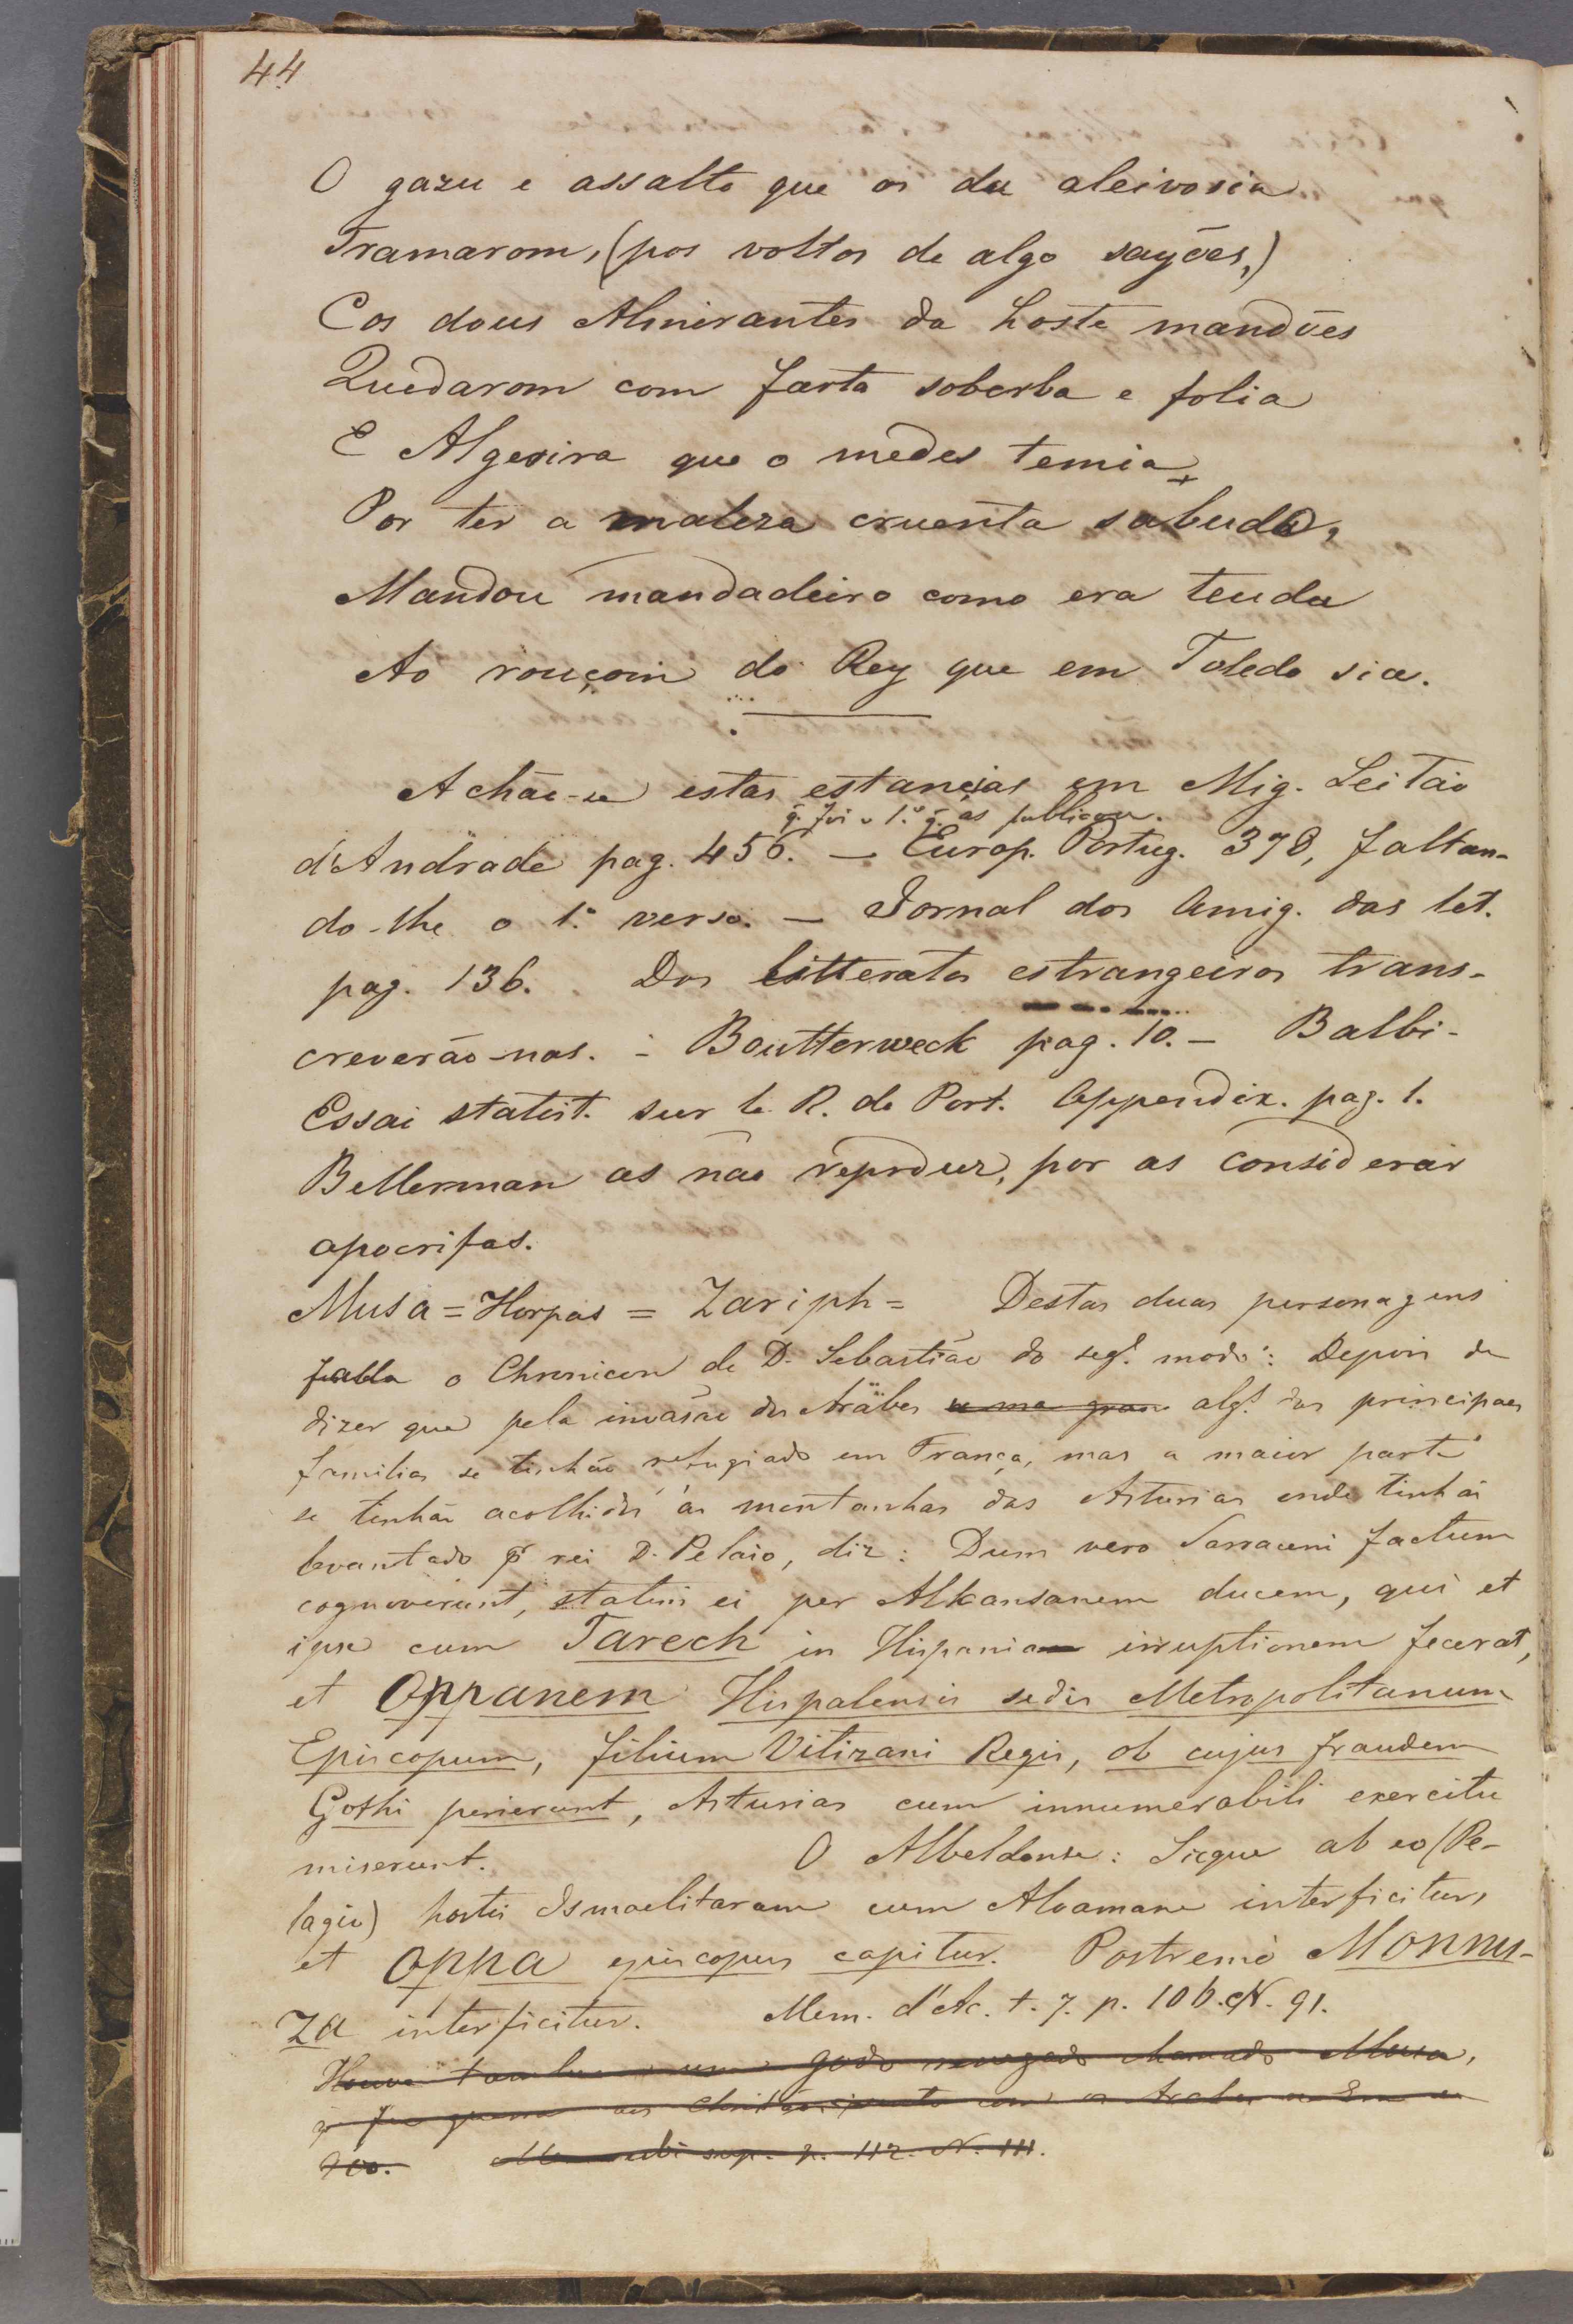 44
O gazu e assalto que os da aleivosia
Tramarom, (pos voltos de algo sayões,)
Cos dous Almirantes da hoste mandões
Quedarom com farta soberba e folia
E Algezira que o medes temia
Por ter a maleza cruenta sabuda,
Mandou mandadeiro como era teuda
Ao rouçom do Rey que em Toledo sia.
Achão-se estas estancias em Mig. Leitão
q̃ foi o 1.º q̃ as publicou.
d'Andrade pag. 456. — Europ. Portug. 378, faltan-
do-lhe o 1.º verso. — Jornal dos Amig. das let.
pag. 136. Dos litteratos estrangeiros trans-
creverão-nas. — Boutterweck pag. 10. — Balbi -
Essai statist. sur le R. de Port. Appendix. pag. 1.
Bellerman as não reproduz, por as considerar
apocrifas.
Musa = Horpas = Zariph = Destas duas personagens
falla o Chronicon de D. Sebastião do seg.te modo: Depois de
dizer que pela invasão dos Arabes alg.s das principaes
familias se tinhão refugiado em França, mas a maior parte
se tinhão acolhido ás montanhas das Asturias onde tinhão
levantado p.r rei D. Pelaio, diz: Dum vero Sarraceni factum
cognoverunt, statim ei per Alkansanem ducem, qui et
ipse cum Tarech in Hispania irruptionem fecerat,
et Oppanem Hispalensis sedis Metropolitanum
Episcopum, filium Vitizani Regis, ob cujus fraudem
Gothi perierunt, Asturias cum innumerabili exercitu
miserunt. O Albeldense: Sicque ab eo (Pe-
lagio) hostis Ismaelitarum cum Alcamane interficitur,
et Oppa episcopus capitur. Postremò Monnu-
za interficitur. Mem. d'Ac. t. 7. p. 106. N. 91.
Houve tambem um godo renegado chamado Musa,
q̃ fez guerra aos Christãos junto com os Arabes
900. ubi sup. p. 112. N. 111.